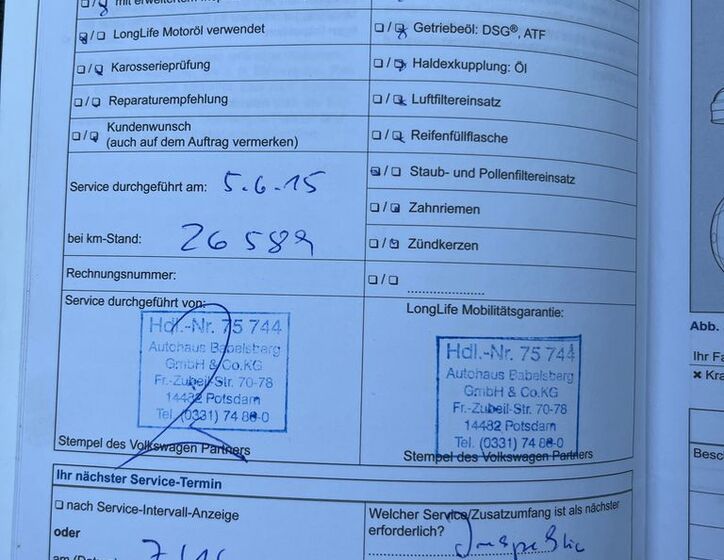 LongLife Motoröl verwendet
Karosserieprüfung
Reparaturempfehlung
Kundenwunsch
(auch auf dem Auftrag vermerken)
Service durchgeführt am: 5.6.15
bei km-Stand: 26 589
Rechnungsnummer:
Service durchgeführt von:
Hdl.-Nr. 75 744
Autohaus Babelsberg
GmbH & Co.KG
Fr.-Zubeil-Str. 70-78
14482 Potsdam
Tel. (0331) 74 88-0
Stempel des Volkswagen Partners
Getriebeöl: DSG®, ATF
Haldexkupplung: Öl
Luftfiltereinsatz
Reifenfüllflasche
Staub- und Pollenfiltereinsatz
Zahnriemen
Zündkerzen
LongLife Mobilitätsgarantie:
Hdl.-Nr. 75 744
Autohaus Babelsberg
GmbH & Co.KG
Fr.-Zubeil-Str. 70-78
14482 Potsdam
Tel. (0331) 74 88-0
Stempel des Volkswagen Partners
Ihr nächster Service-Termin
nach Service-Intervall-Anzeige
oder
Welcher Service/Zusatzumfang ist als nächster
erforderlich?
Abb.
Ihr Fa
Kra
Besc